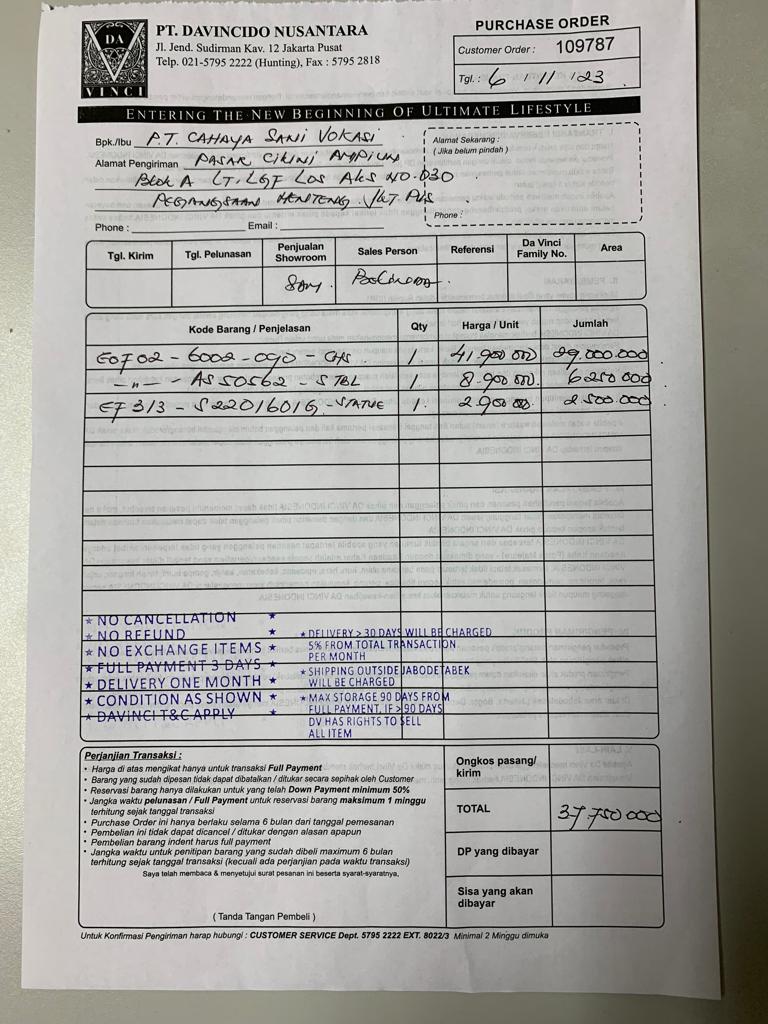 DA
VINCI
PT. DAVINCIDO NUSANTARA
Jl. Jend. Sudirman Kav. 12 Jakarta Pusat
Telp. 021-5795 2222 (Hunting), Fax : 5795 2818
PURCHASE ORDER
Customer Order : 109787
Tgl. : 6 / 11 / 23
ENTERING THE NEW BEGINNING OF ULTIMATE LIFESTYLE
Bpk./Ibu P.T. CAHAYA SANI VOKASI
Alamat Pengiriman PASAR CIKINI AMPIUM
Blok A LT. LGF LOS AKS NO. 030
PEGANGSAAN MENTENG JKT PUS
Phone : Email :
Alamat Sekarang :
( Jika belum pindah )
Phone :
Tgl. Kirim Tgl. Pelunasan Penjualan Showroom Sales Person Referensi Da Vinci Family No. Area
Kode Barang / Penjelasan Qty Harga / Unit Jumlah
EOF 02 - 6002 - 090 - CHS 1. 41.900 000 29.000.000
- " - - AS 50562 - S TBL 1. 8.900 000. 6 250 000
EF 313 - S2201601G - STATUE 1. 2.900 000. 2.500.000
★ NO CANCELLATION ★
★ NO REFUND ★
★ NO EXCHANGE ITEMS ★
★ FULL PAYMENT 3 DAYS ★
★ DELIVERY ONE MONTH ★
★ CONDITION AS SHOWN ★
★ DAVINCI T&C APPLY ★
★ DELIVERY > 30 DAYS WILL BE CHARGED
5% FROM TOTAL TRANSACTION
PER MONTH
★ SHIPPING OUTSIDE JABODETABEK
WILL BE CHARGED
★ MAX STORAGE 90 DAYS FROM
FULL PAYMENT, IF > 90 DAYS
DV HAS RIGHTS TO SELL
ALL ITEM
Perjanjian Transaksi :
• Harga di atas mengikat hanya untuk transaksi Full Payment
• Barang yang sudah dipesan tidak dapat dibatalkan / ditukar secara sepihak oleh Customer
• Reservasi barang hanya dilakukan untuk yang telah Down Payment minimum 50%
• Jangka waktu pelunasan / Full Payment untuk reservasi barang maksimum 1 minggu
terhitung sejak tanggal transaksi
• Purchase Order ini hanya berlaku selama 6 bulan dari tanggal pemesanan
• Pembelian ini tidak dapat dicancel / ditukar dengan alasan apapun
• Pembelian barang indent harus full payment
• Jangka waktu untuk penitipan barang yang sudah dibeli maximum 6 bulan
terhitung sejak tanggal transaksi (kecuali ada perjanjian pada waktu transaksi)
Saya telah membaca & menyetujui surat pesanan ini beserta syarat-syaratnya,
( Tanda Tangan Pembeli )
Ongkos pasang/
kirim
TOTAL 37.750 000
DP yang dibayar
Sisa yang akan
dibayar
Untuk Konfirmasi Pengiriman harap hubungi : CUSTOMER SERVICE Dept. 5795 2222 EXT. 8022/3 Minimal 2 Minggu dimuka